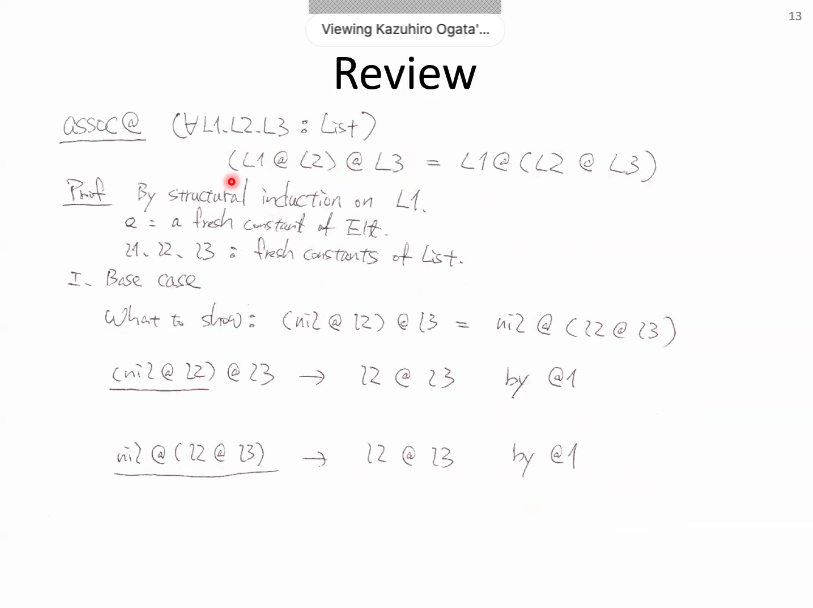 13
Viewing Kazuhiro Ogata'...
Review
assoc@ (∀L1.L2.L3 : List)
(L1 @ L2) @ L3 = L1 @ (L2 @ L3)
Proof By structural induction on L1.
e : a fresh constant of Elt.
l1, l2, l3 : fresh constants of List.
I. Base case
What to show : (nil @ l2) @ l3 = nil @ (l2 @ l3)
(nil @ l2) @ l3 → l2 @ l3 by @1
nil @ (l2 @ l3) → l2 @ l3 by @1